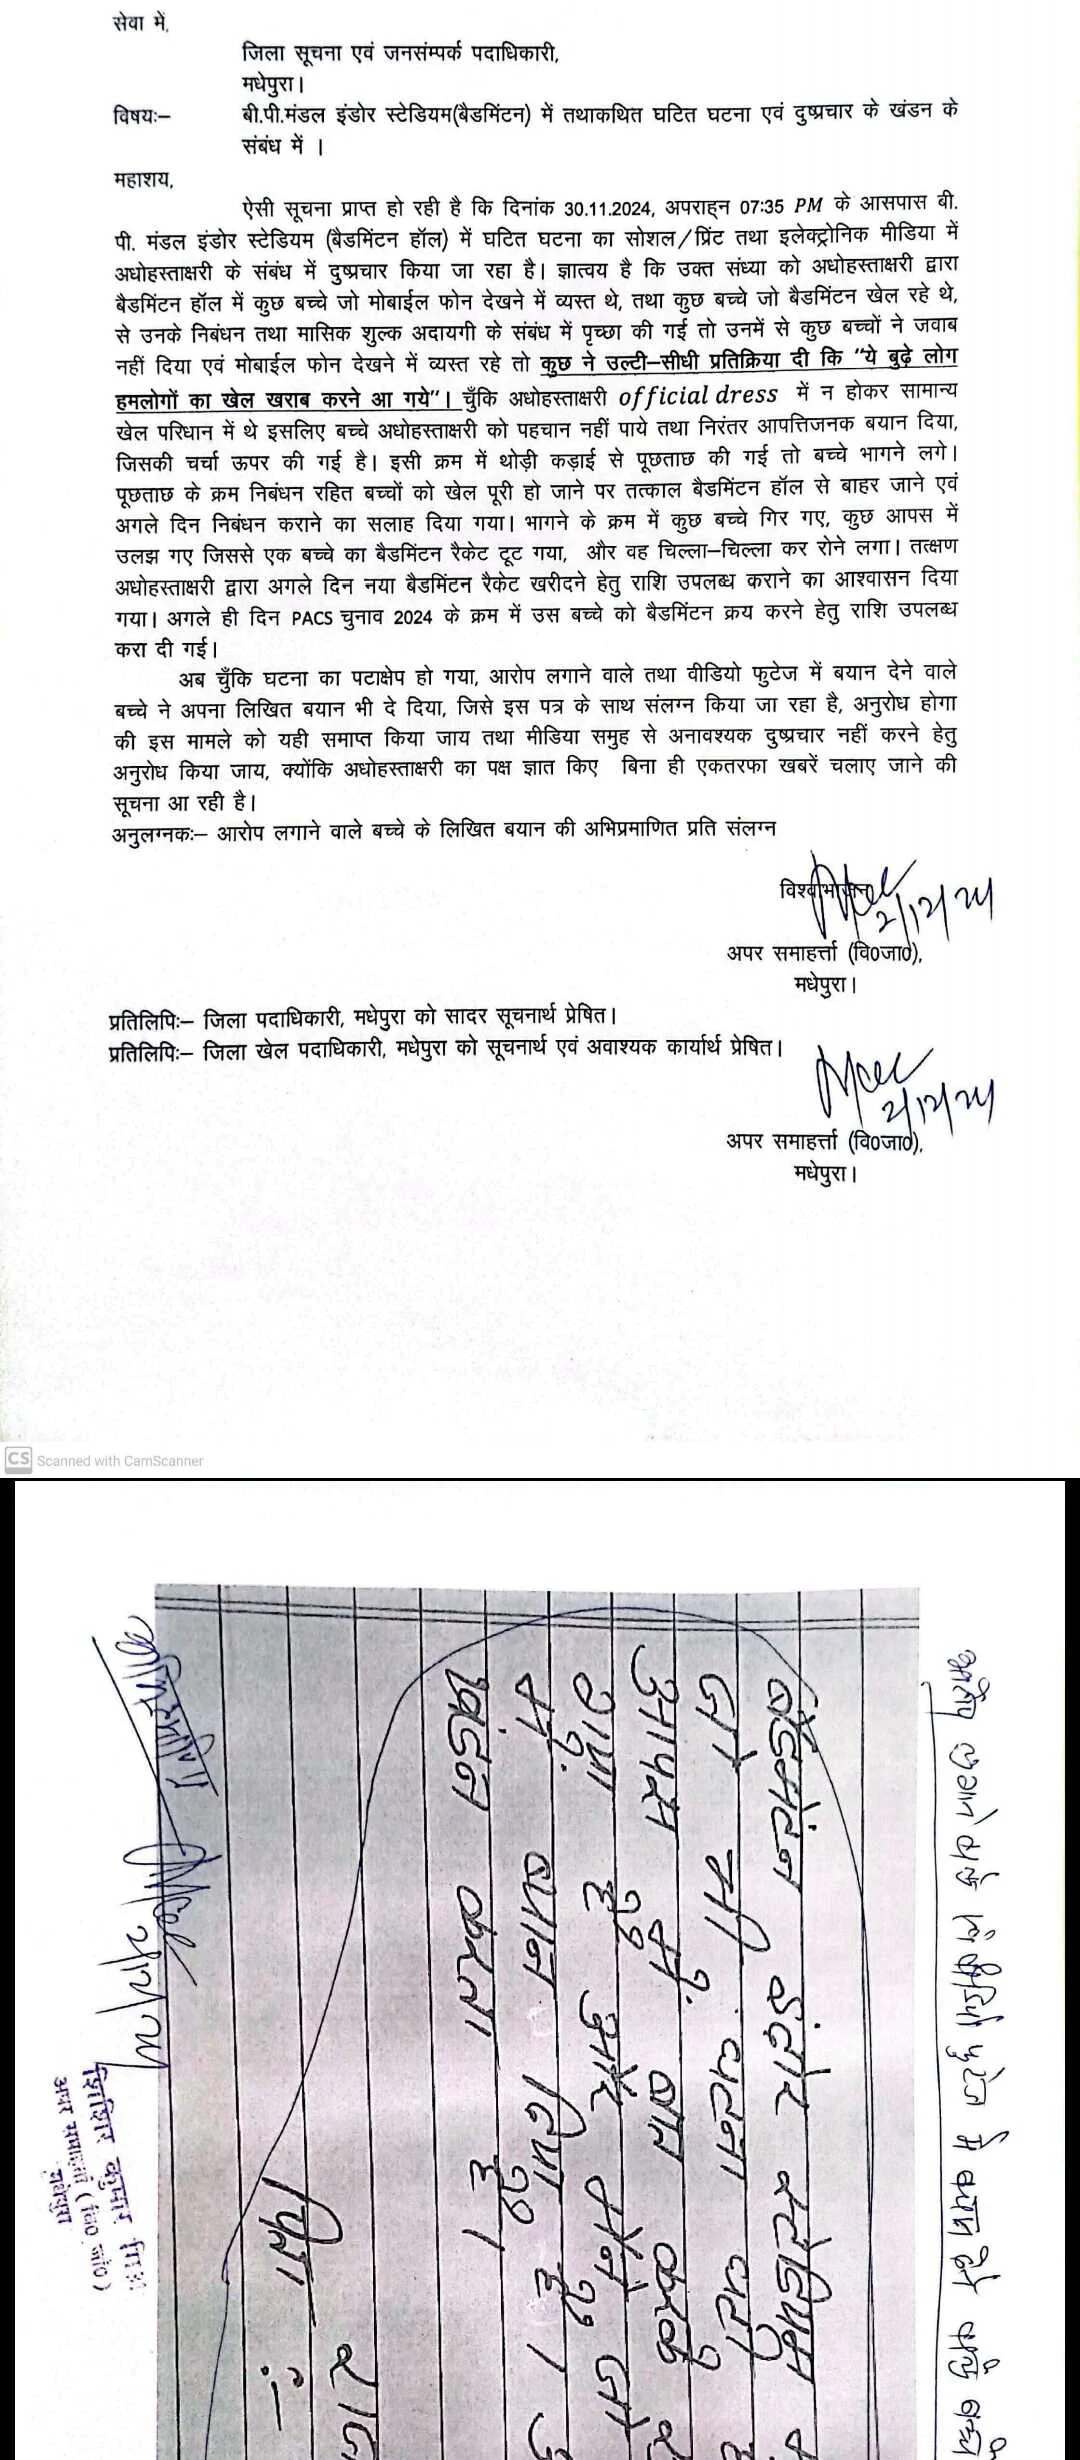 सेवा में,
जिला सूचना एवं जनसंम्पर्क पदाधिकारी,
मधेपुरा।
विषयः– बी.पी.मंडल इंडोर स्टेडियम(बैडमिंटन) में तथाकथित घटित घटना एवं दुष्प्रचार के खंडन के
संबंध में ।
महाशय,
ऐसी सूचना प्राप्त हो रही है कि दिनांक 30.11.2024, अपराह्न 07:35 PM के आसपास बी.
पी. मंडल इंडोर स्टेडियम (बैडमिंटन हॉल) में घटित घटना का सोशल/प्रिंट तथा इलेक्ट्रोनिक मीडिया में
अधोहस्ताक्षरी के संबंध में दुष्प्रचार किया जा रहा है। ज्ञात्वय है कि उक्त संध्या को अधोहस्ताक्षरी द्वारा
बैडमिंटन हॉल में कुछ बच्चे जो मोबाईल फोन देखने में व्यस्त थे, तथा कुछ बच्चे जो बैडमिंटन खेल रहे थे,
से उनके निबंधन तथा मासिक शुल्क अदायगी के संबंध में पृच्छा की गई तो उनमें से कुछ बच्चों ने जवाब
नहीं दिया एवं मोबाईल फोन देखने में व्यस्त रहे तो कुछ ने उल्टी–सीधी प्रतिक्रिया दी कि “ये बुढ़े लोग
हमलोगों का खेल खराब करने आ गये”। चुँकि अधोहस्ताक्षरी official dress में न होकर सामान्य
खेल परिधान में थे इसलिए बच्चे अधोहस्ताक्षरी को पहचान नहीं पाये तथा निरंतर आपत्तिजनक बयान दिया,
जिसकी चर्चा ऊपर की गई है। इसी क्रम में थोड़ी कड़ाई से पूछताछ की गई तो बच्चे भागने लगे।
पूछताछ के क्रम निबंधन रहित बच्चों को खेल पूरी हो जाने पर तत्काल बैडमिंटन हॉल से बाहर जाने एवं
अगले दिन निबंधन कराने का सलाह दिया गया। भागने के क्रम में कुछ बच्चे गिर गए, कुछ आपस में
उलझ गए जिससे एक बच्चे का बैडमिंटन रैकेट टूट गया, और वह चिल्ला–चिल्ला कर रोने लगा। तत्क्षण
अधोहस्ताक्षरी द्वारा अगले दिन नया बैडमिंटन रैकेट खरीदने हेतु राशि उपलब्ध कराने का आश्वासन दिया
गया। अगले ही दिन PACS चुनाव 2024 के क्रम में उस बच्चे को बैडमिंटन क्रय करने हेतु राशि उपलब्ध
करा दी गई।
अब चुँकि घटना का पटाक्षेप हो गया, आरोप लगाने वाले तथा वीडियो फुटेज में बयान देने वाले
बच्चे ने अपना लिखित बयान भी दे दिया, जिसे इस पत्र के साथ संलग्न किया जा रहा है, अनुरोध होगा
की इस मामले को यही समाप्त किया जाय तथा मीडिया समुह से अनावश्यक दुष्प्रचार नहीं करने हेतु
अनुरोध किया जाय, क्योंकि अधोहस्ताक्षरी का पक्ष ज्ञात किए बिना ही एकतरफा खबरें चलाए जाने की
सूचना आ रही है।
अनुलग्नकः– आरोप लगाने वाले बच्चे के लिखित बयान की अभिप्रमाणित प्रति संलग्न
2/12/24
अपर समाहर्त्ता (वि0जा0),
मधेपुरा।
प्रतिलिपिः– जिला पदाधिकारी, मधेपुरा को सादर सूचनार्थ प्रेषित।
प्रतिलिपिः– जिला खेल पदाधिकारी, मधेपुरा को सूचनार्थ एवं अवाश्यक कार्यार्थ प्रेषित।
2/12/24
अपर समाहर्त्ता (वि0जा0),
मधेपुरा।
CS Scanned with CamScanner
आरोप लगाने वाले एवं वीडियो फुटेज में बयान देने वाले बच्चे
बैडमिंटन इंडोर स्टेडियम
जो भी घटना घटी
आपस में बात करके
गया है और मैंने जो
में बयान दिया है।
खंडन करता हूँ।
पिता
2/12/24
शिशिर कुमार
अपर समाहर्त्ता (वि0 जा0)
मधेपुरा